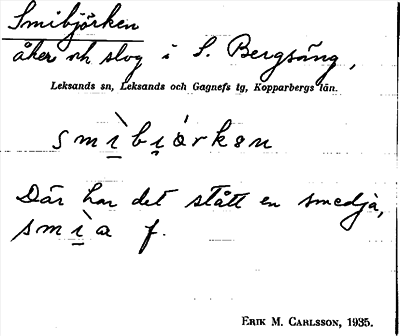 Smibjörken
åker och slog i S. Bergsäng,
Leksands sn, Leksands och Gagnefs tg, Kopparbergs län.
smìbi̯årkən
Där har det stått en smedja,
smìa f.
ERIK M. CARLSSON, 1935.